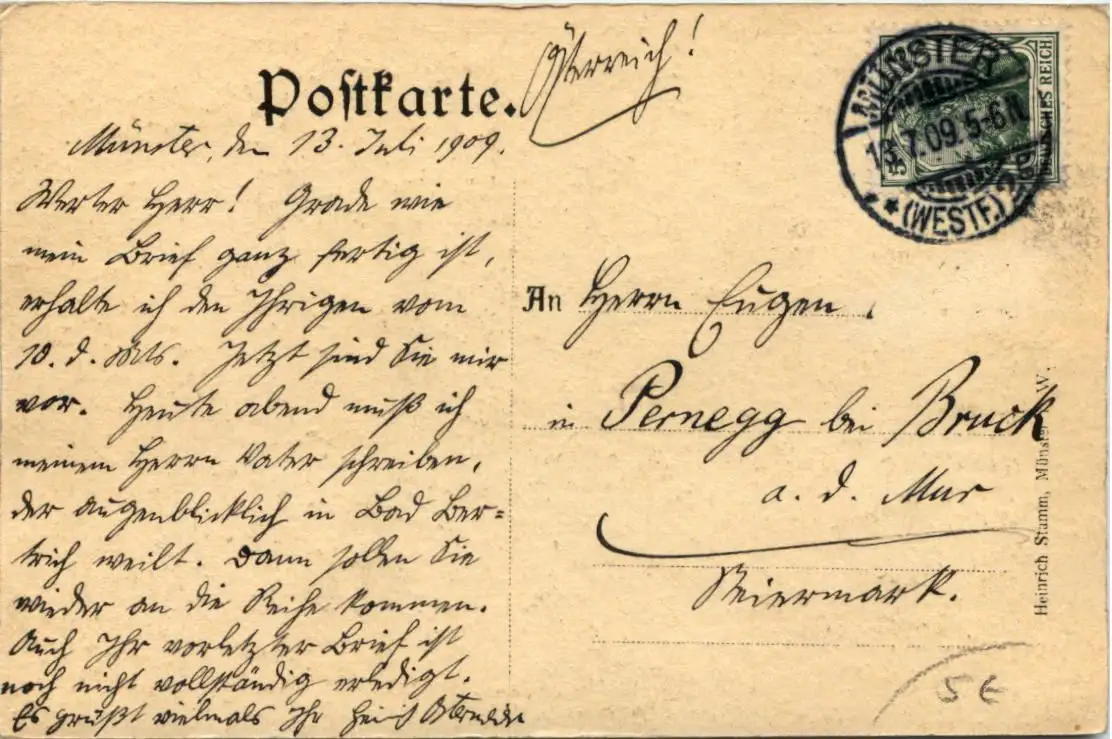 Österreich!
Postkarte.
MÜNSTER
13.7.09.5-6N.
* (WESTF.) 2
DEUTSCHES REICH
5
Münster, den 13. Juli 1909.
Werter Herr! Grade wie
mein Brief ganz fertig ist,
erhalte ich den Ihrigen vom
10. d. Mts. Jetzt sind Sie mir
vor. Heute abend muß ich
meinem Herrn Vater schreiben,
der augenblicklich in Bad Ber=
trich weilt. Dann sollen Sie
wieder an die Reihe kommen.
Auch Ihr vorletzter Brief ist
noch nicht vollständig erledigt.
Es grüßt vielmals Ihr
An Herrn Eugen
in Pernegg bei Bruck
a. d. Mur
Steiermark.
Heinrich Stamm, Münster W.
5 €